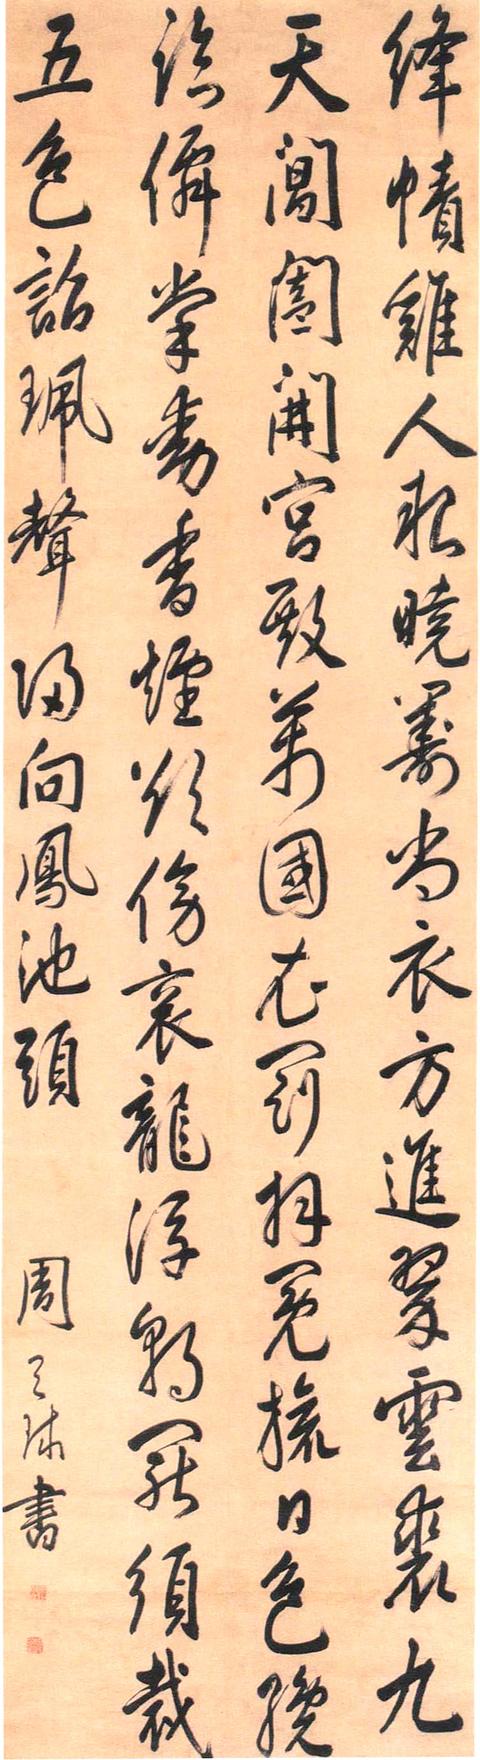 絳幘雞人報曉籌尚衣方進翠雲裘九
天閶闔開宮殿萬國衣冠拜冕旒日色纔
臨僊掌動香煙欲傍袞龍浮朝罷須裁
五色詔珮聲歸向鳳池頭
周天球書